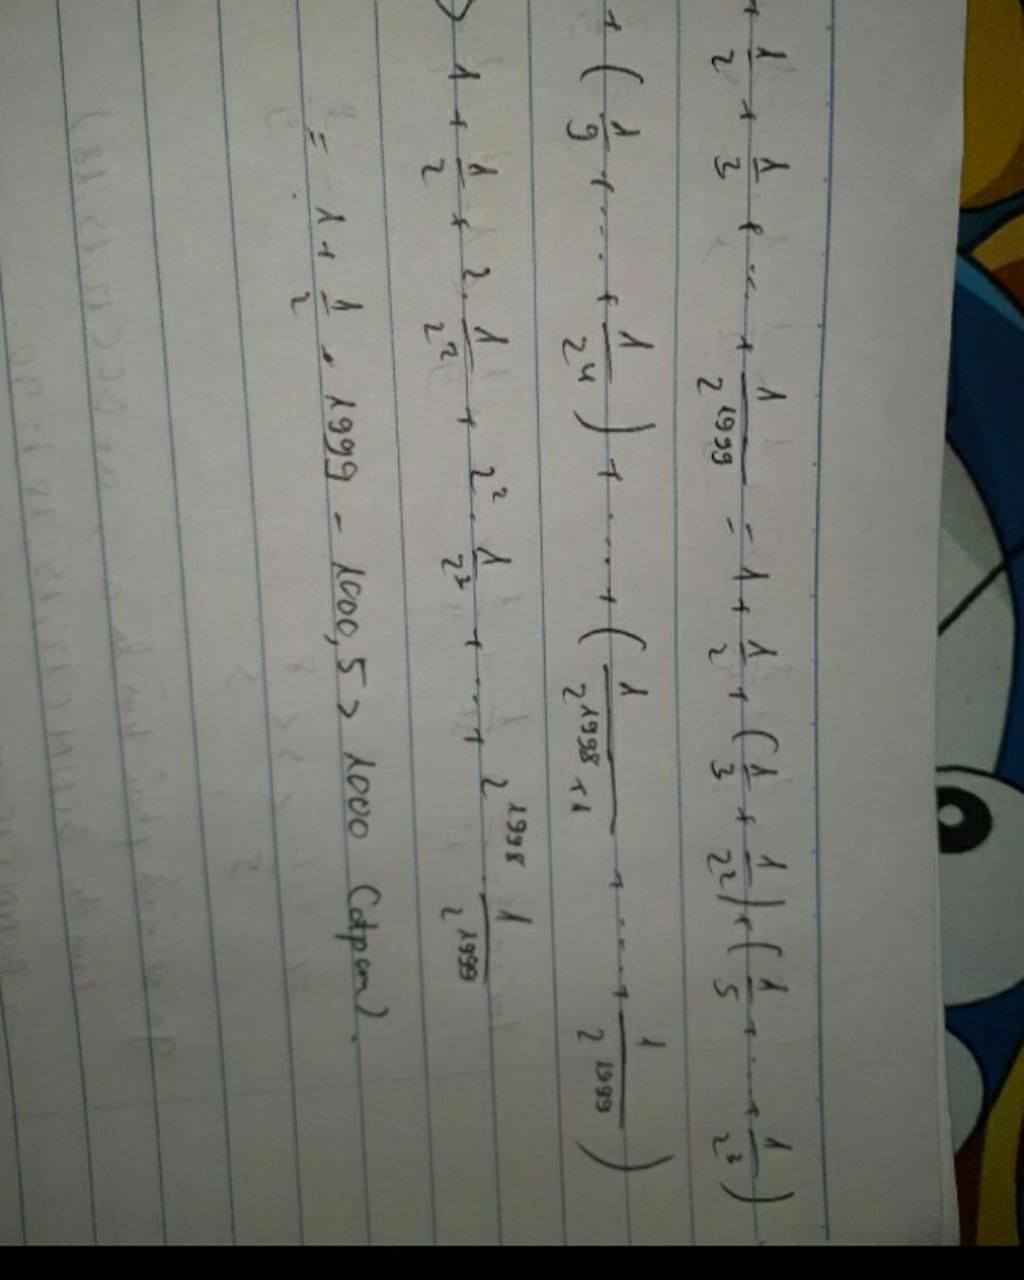 + 1/2 + 1/3 + ... + 1/2^1999 = 1 + 1/2 + (1/3 + 1/2^2) + (1/5 + ... + 1/2^3)
+ (1/9 + .... + 1/2^4) + .... + (1/2^1998+1 + .... + 1/2^1999)
> 1 + 1/2 + 2.1/2^2 + 2^2.1/2^3 + .... + 2^1998.1/2^1999
= 1 + 1/2 . 1999 = 1000,5 > 1000 (đpcm).